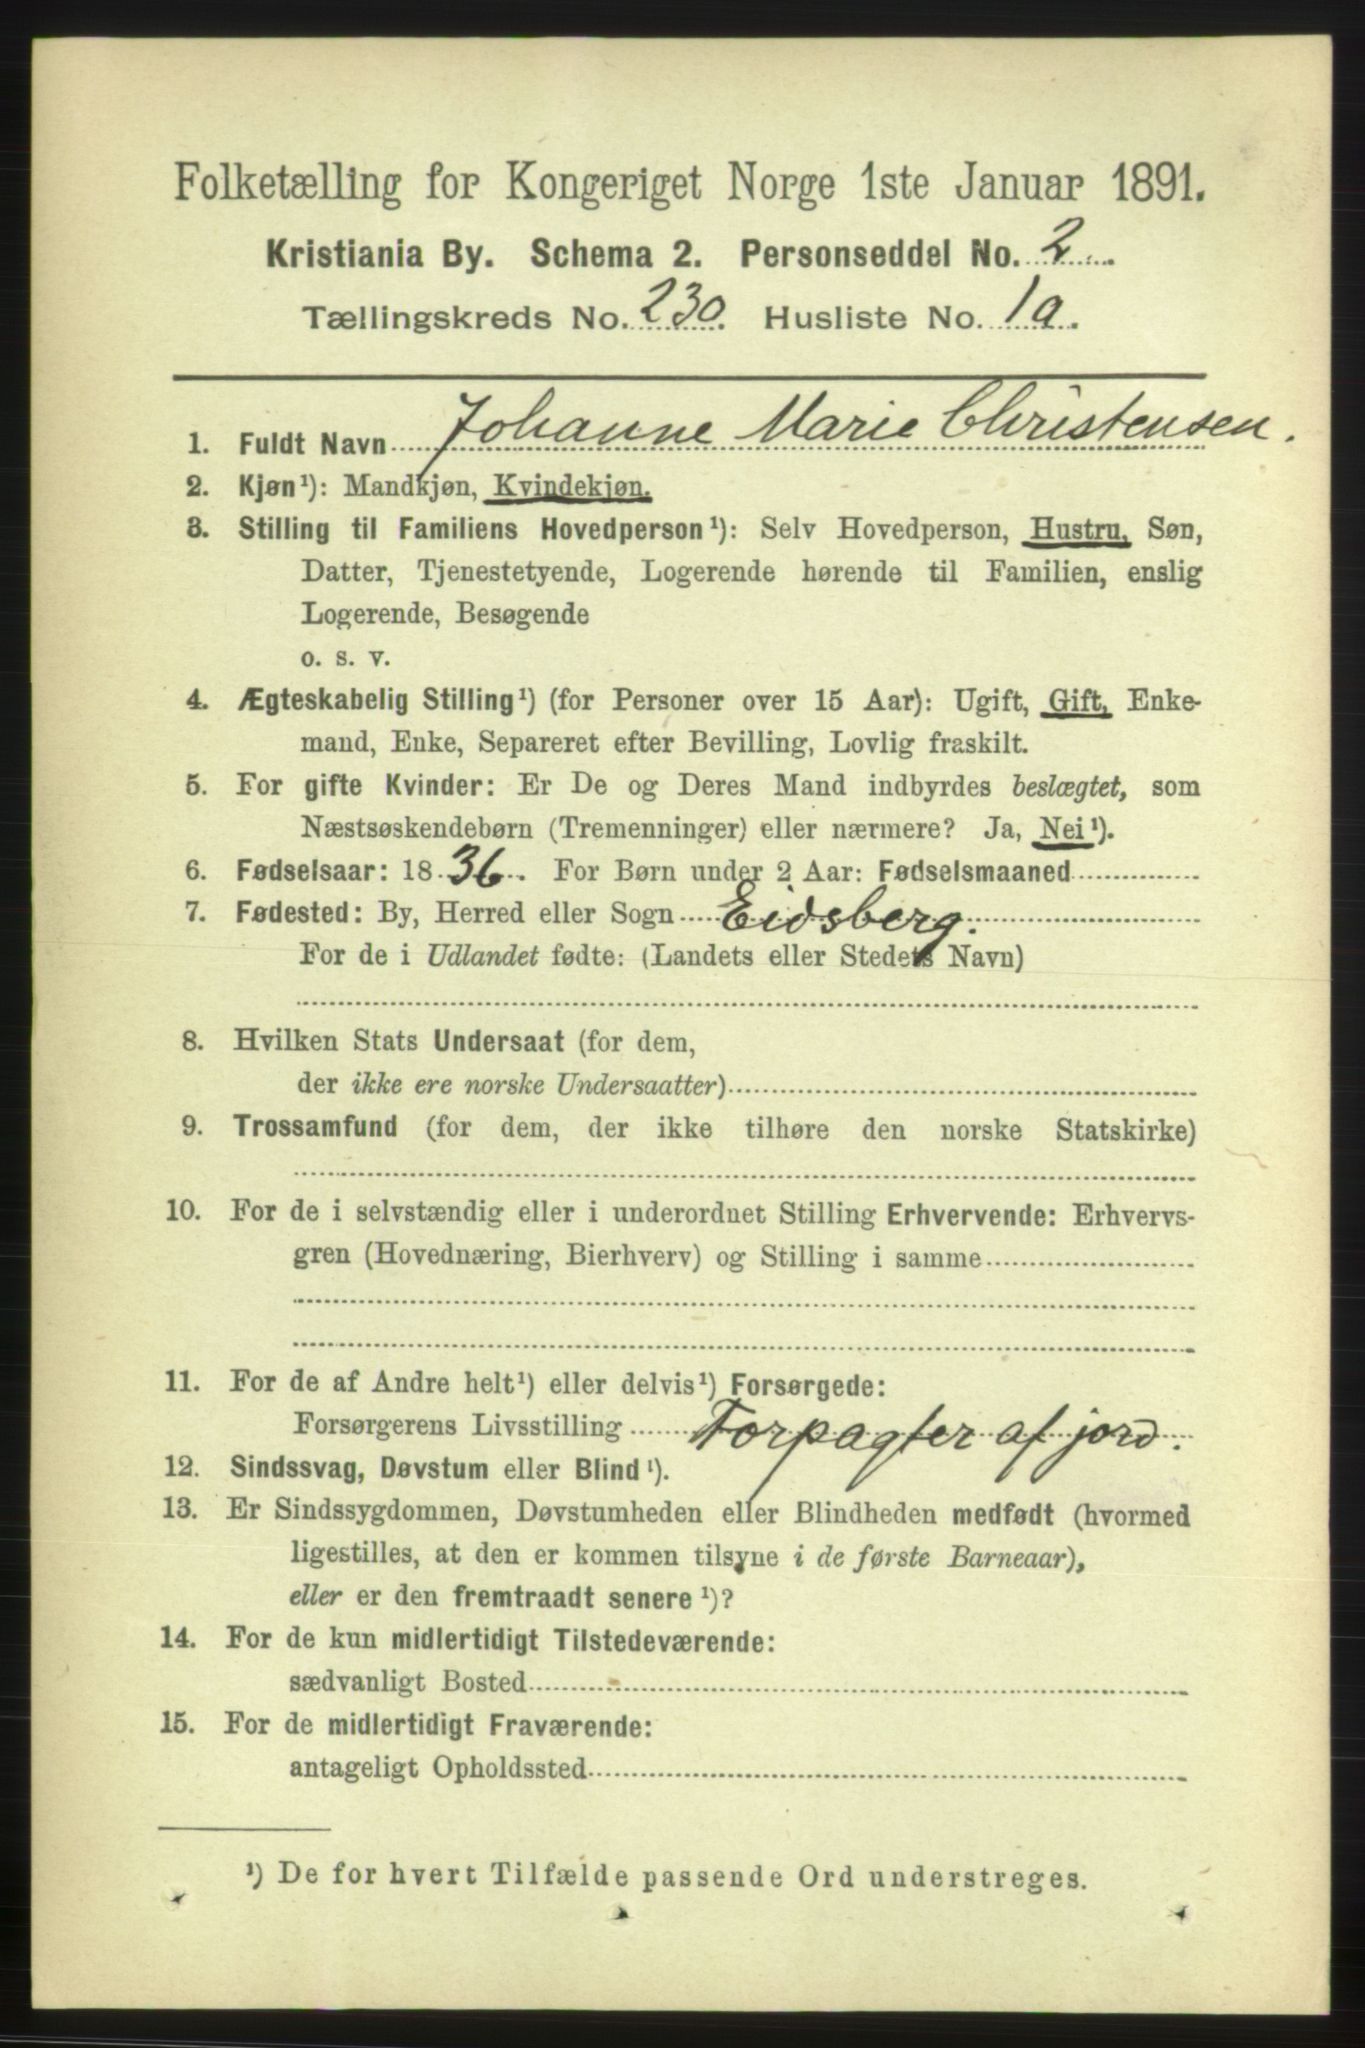 Folketælling for Kongeriget Norge 1ste Januar 1891.
Kristiania By. Schema 2. Personseddel No. 2
Tællingskreds No. 230. Husliste No. 1a.
1. Fuldt Navn Johanne Marie Christensen.
2. Kjøn¹): Mandkjøn, Kvindekjøn.
3. Stilling til Familiens Hovedperson¹): Selv Hovedperson, Hustru, Søn,
Datter, Tjenestetyende, Logerende hørende til Familien, enslig
Logerende, Besøgende
o. s. v.
4. Ægteskabelig Stilling¹) (for Personer over 15 Aar): Ugift, Gift, Enke-
mand, Enke, Separeret efter Bevilling, Lovlig fraskilt.
5. For gifte Kvinder: Er De og Deres Mand indbyrdes beslægtet, som
Næstsøskendebørn (Tremenninger) eller nærmere? Ja, Nei¹).
6. Fødselsaar: 1836. For Børn under 2 Aar: Fødselsmaaned
7. Fødested: By, Herred eller Sogn Eidsberg.
For de i Udlandet fødte: (Landets eller Stedets Navn)
8. Hvilken Stats Undersaat (for dem,
der ikke ere norske Undersaatter)
9. Trossamfund (for dem, der ikke tilhøre den norske Statskirke)
10. For de i selvstændig eller i underordnet Stilling Erhvervende: Erhvervs-
gren (Hovednæring, Bierhverv) og Stilling i samme
11. For de af Andre helt¹) eller delvis¹) Forsørgede:
Forsørgerens Livsstilling Forpagter af jord.
12. Sindssvag, Døvstum eller Blind¹).
13. Er Sindssygdommen, Døvstumheden eller Blindheden medfødt (hvormed
ligestilles, at den er kommen tilsyne i de første Barneaar),
eller er den fremtraadt senere¹)?
14. For de kun midlertidigt Tilstedeværende:
sædvanligt Bosted
15. For de midlertidigt Fraværende:
antageligt Opholdssted
¹) De for hvert Tilfælde passende Ord understreges.